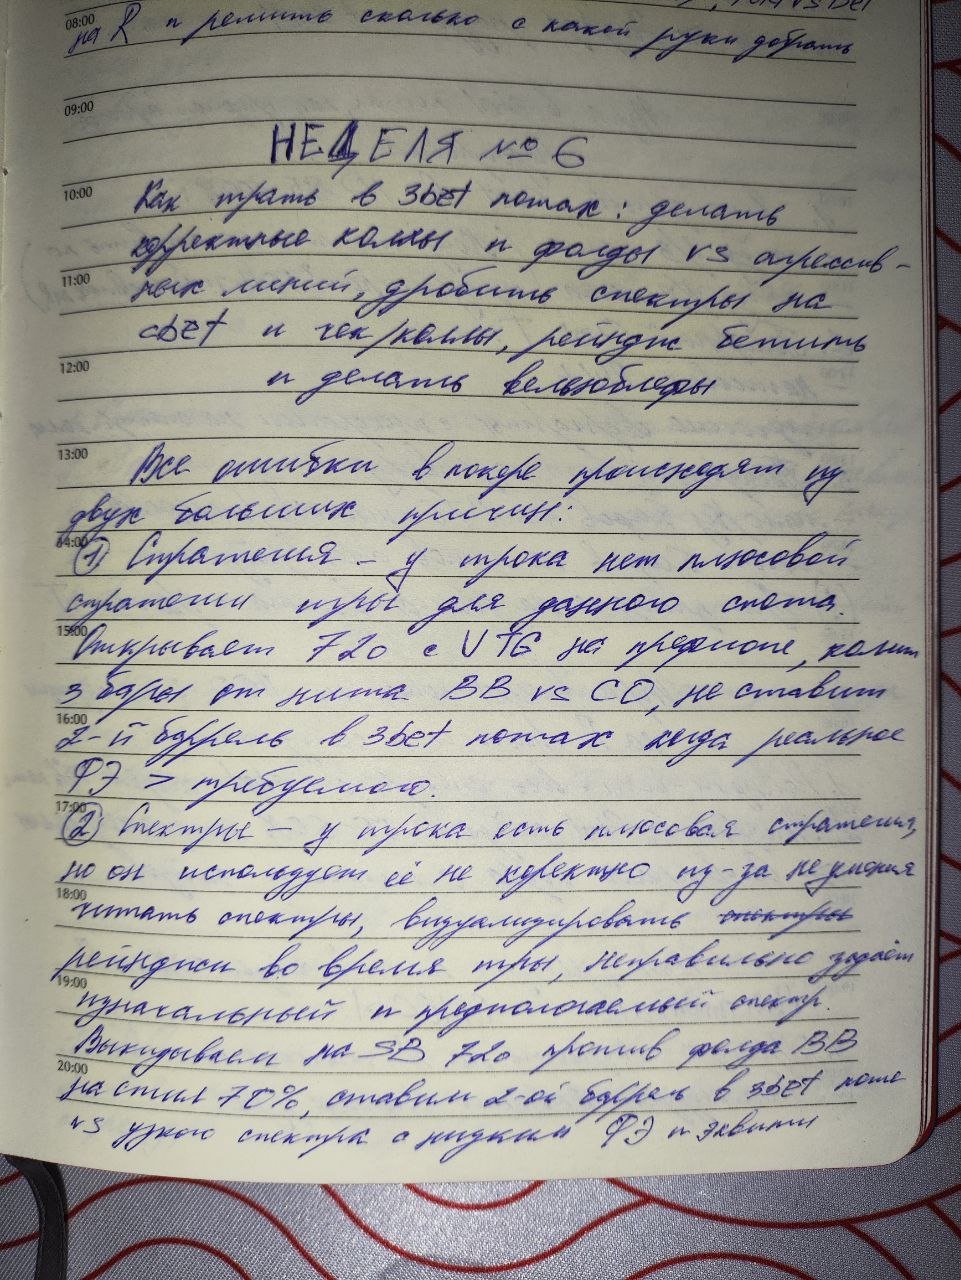 vs bet
08:00
на R и решить сколько с какой руки добрать
09:00
НЕДЕЛЯ № 6
10:00
Как играть в 3bet потах: делать
корректные коллы и фолды vs агрессив-
11:00
ных линий, дробить спектры на
cbet и чек/коллы, рейндж бетить
12:00
и делать вельюблефы
13:00
Все ошибки в покере происходят из
двух больших причин:
14:00
① Стратегия – у игрока нет плюсовой
стратегии игры для данного спота.
15:00
Открывает 72o с UTG на префлопе, колит
3 барр от нита BB vs CO, не ставит
16:00
2-й баррель в 3bet потах когда реальное
ФЭ > требуемого.
17:00
② Спектры – у игрока есть плюсовая стратегия,
но он использует её не коректно из-за неумения
18:00
читать спектры, визуализировать спектры
рейнджи во время игры, неправильно задаёт
19:00
изначальный и предполагаемый спектр.
Выкидываем на SB 72o против фолда BB
20:00
на стил 70%, ставим 2-ой баррель в 3bet поте
vs узкого спектра с низким ФЭ и эквити